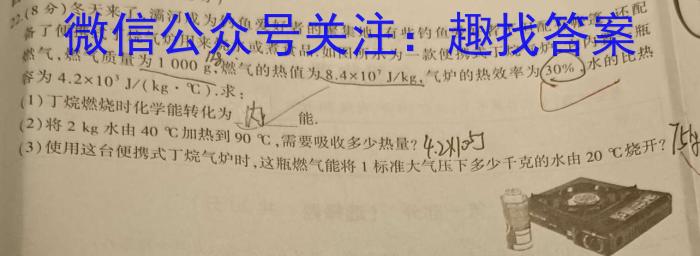 22.(8分)冬天来了,灞河成为
微信公众号关注：趣找答案
燃气,燃气质量为1 000 g,燃气的热值为8.4×10⁷ J/kg,气炉的热效率为30%,水的比热
容为4.2×10³ J/(kg·℃).求:
(1)丁烷燃烧时化学能转化为 内 能.
(2)将2 kg水由40 ℃加热到90 ℃,需要吸收多少热量? 4.2×10⁵J
(3)使用这台便携式丁烷气炉时,这瓶燃气能将1标准大气压下多少千克的水由20 ℃烧开? 75kg